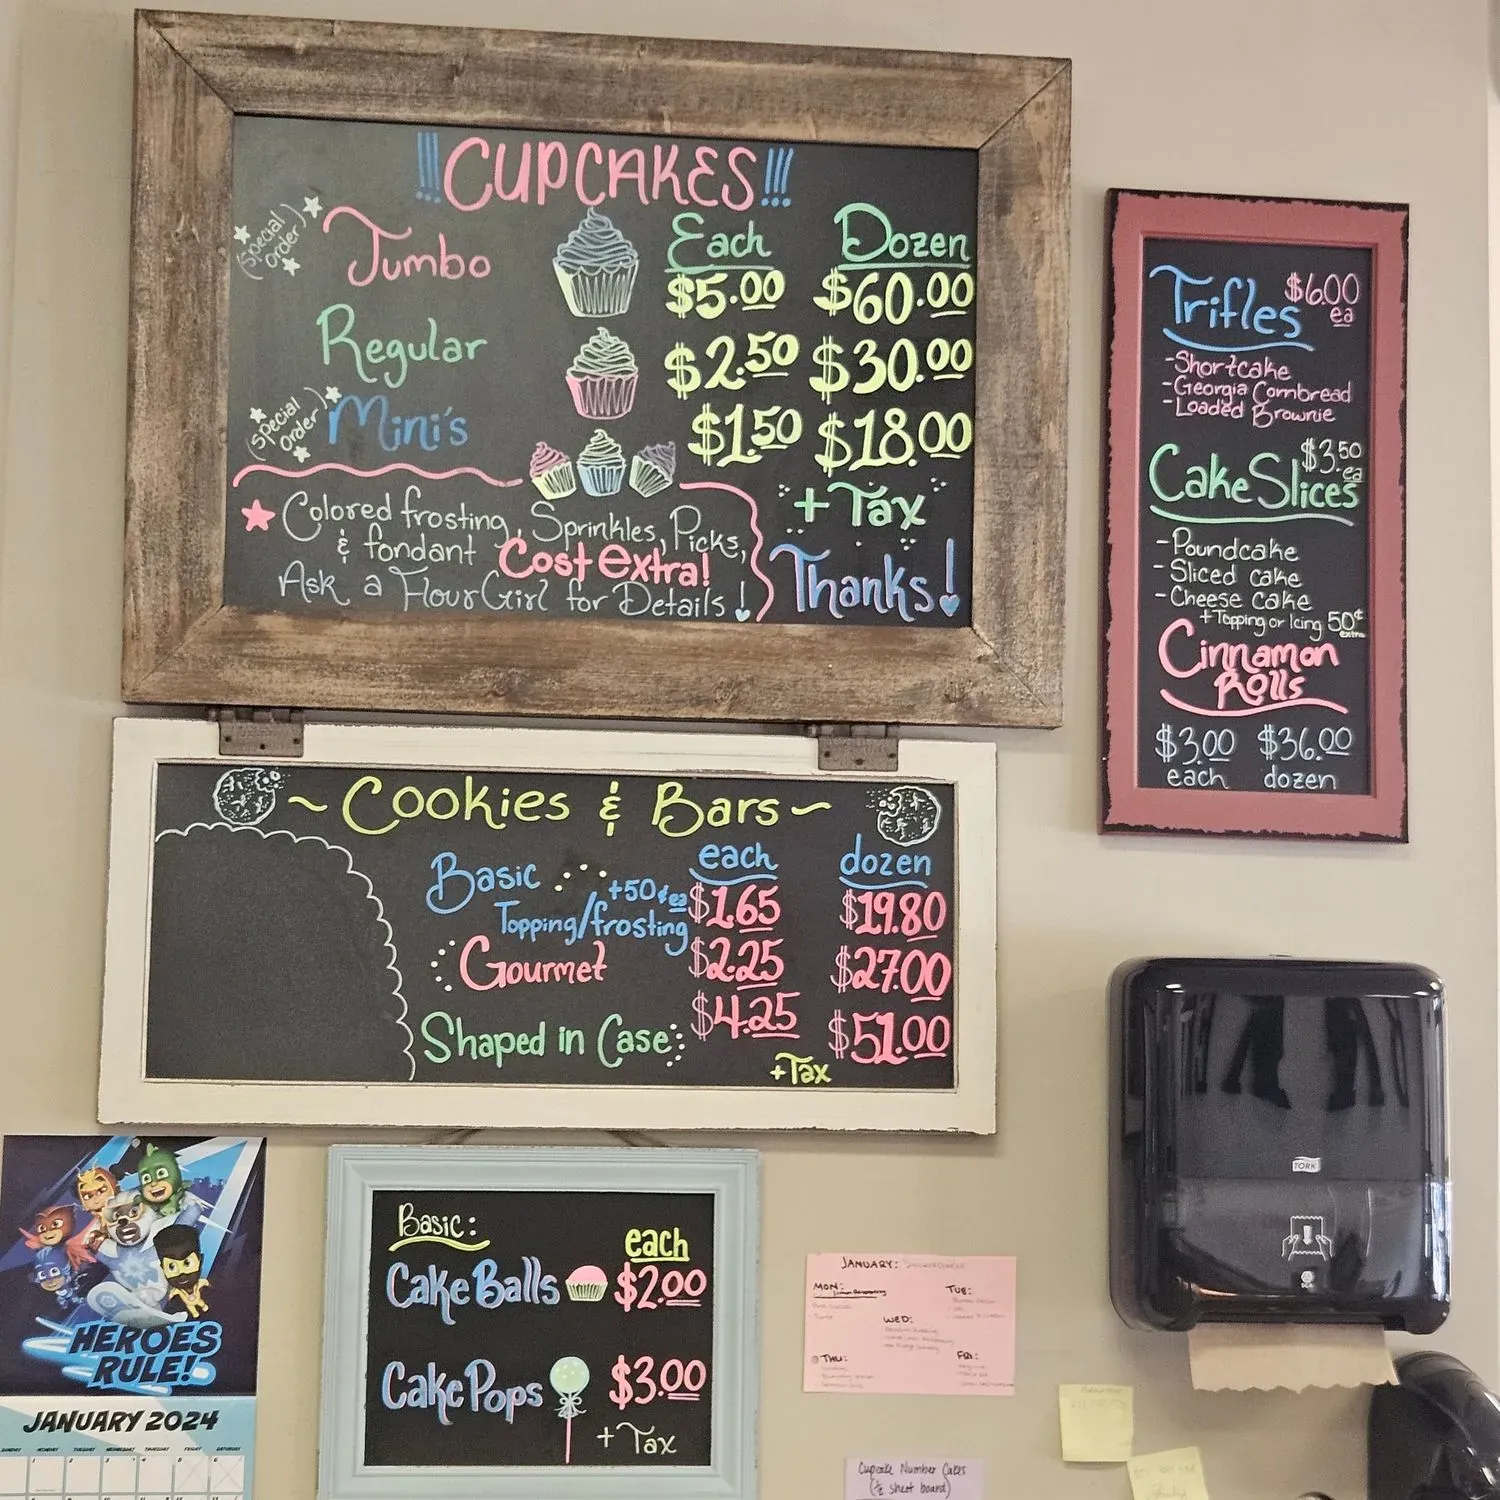 !!!CUPCAKES!!!
Each Dozen
(Special Order) Jumbo $5.00 $60.00
Regular $2.50 $30.00
(Special Order) Mini's $1.50 $18.00
+ Tax
Thanks!
Colored frosting, Sprinkles, Picks,
& fondant Cost extra!
Ask a Flour Girl for Details!
Trifles $6.00 ea
-Shortcake
-Georgia Cornbread
-Loaded Brownie
$3.50 ea
Cake Slices
-Poundcake
-Sliced cake
-Cheese cake
+Topping or Icing 50¢ extra
Cinnamon
Rolls
$3.00 $36.00
each dozen
~Cookies & Bars~
each dozen
Basic $1.65 $19.80
+50¢ ea
Topping/frosting
Gourmet $2.25 $27.00
Shaped in Case $4.25 $51.00
+Tax
Basic:
each
Cake Balls $2.00
Cake Pops $3.00
+ Tax
HEROES
RULE!
JANUARY 2024
SUNDAY MONDAY TUESDAY WEDNESDAY THURSDAY FRIDAY SATURDAY
JANUARY:
MON: TUE:
WED:
THU: FRI:
Cupcake Number Cakes
(½ sheet board)
TORK